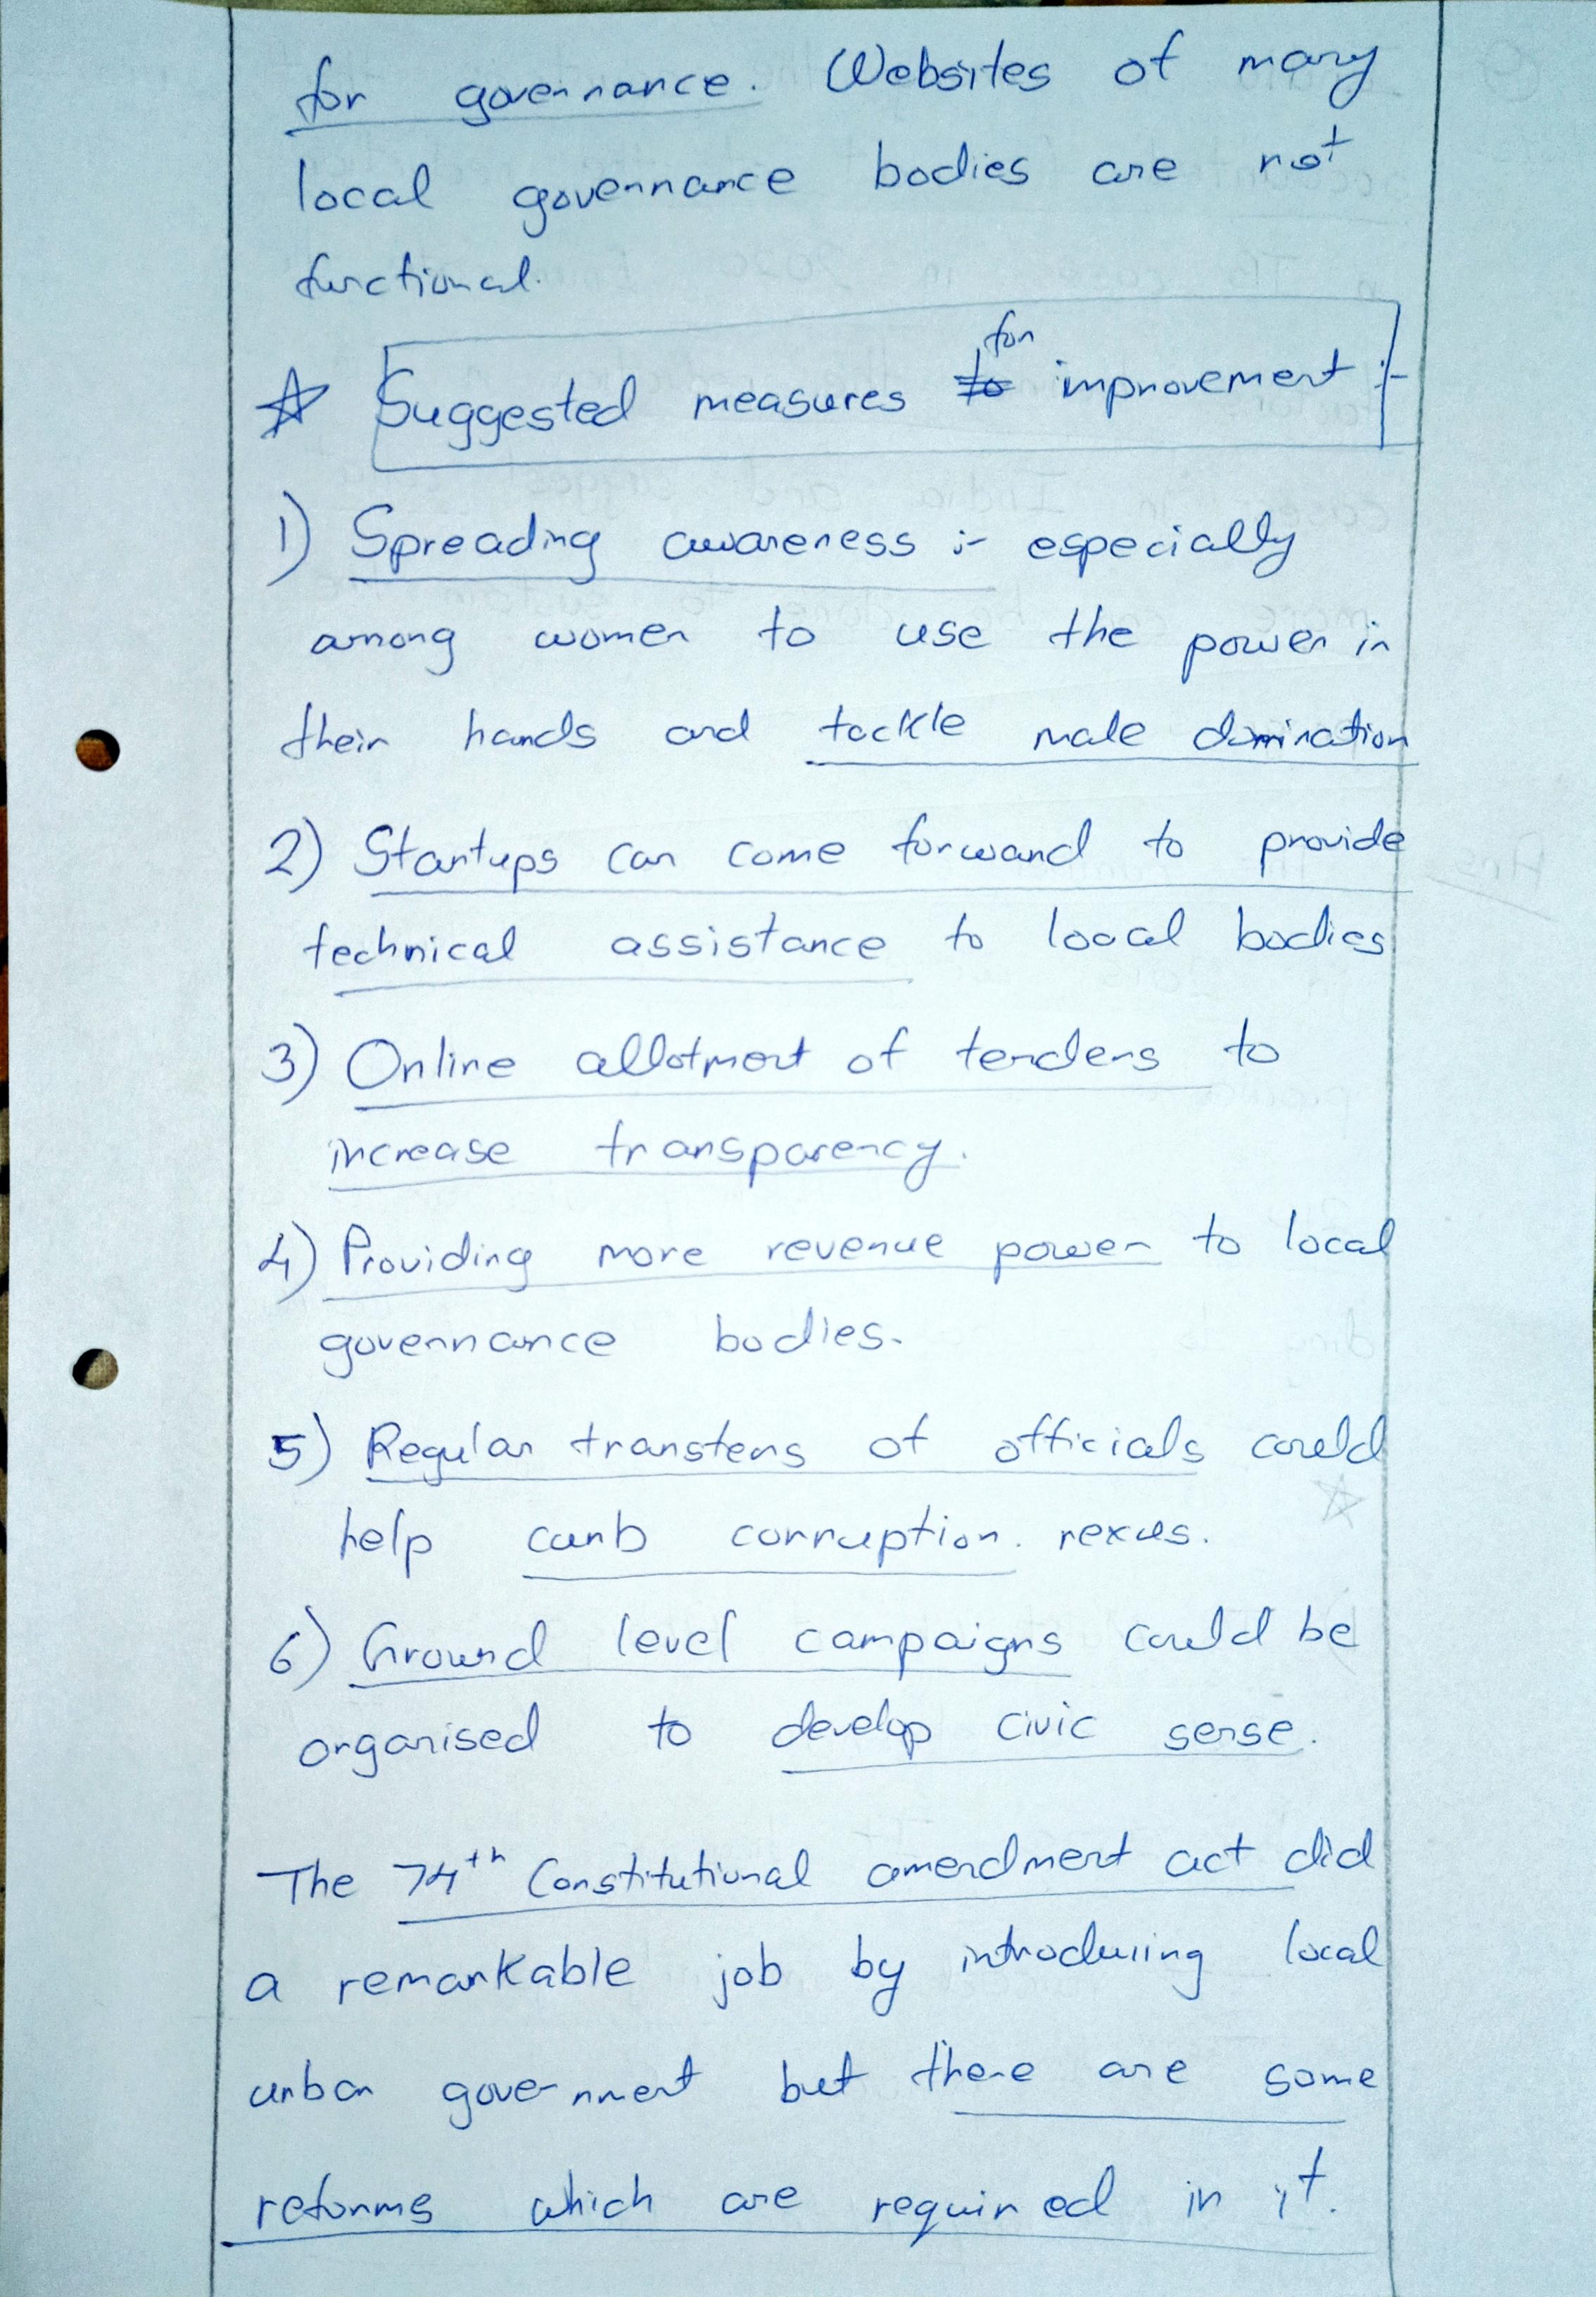 for governance. Websites of many
local governance bodies are not
functional.
☆ Suggested measures to for improvement :-
1) Spreading awareness :- especially
among women to use the power in
their hands and tackle male domination
2) Startups can come forward to provide
technical assistance to local bodies
3) Online allotment of tenders to
increase transparency.
4) Providing more revenue power to local
governance bodies.
5) Regular transfers of officials could
help curb corruption. nexus.
6) Ground level campaigns could be
organised to develop civic sense.
The 74th Constitutional amendment act did
a remarkable job by introducing local
urban government but there are some
reforms which are required in it.